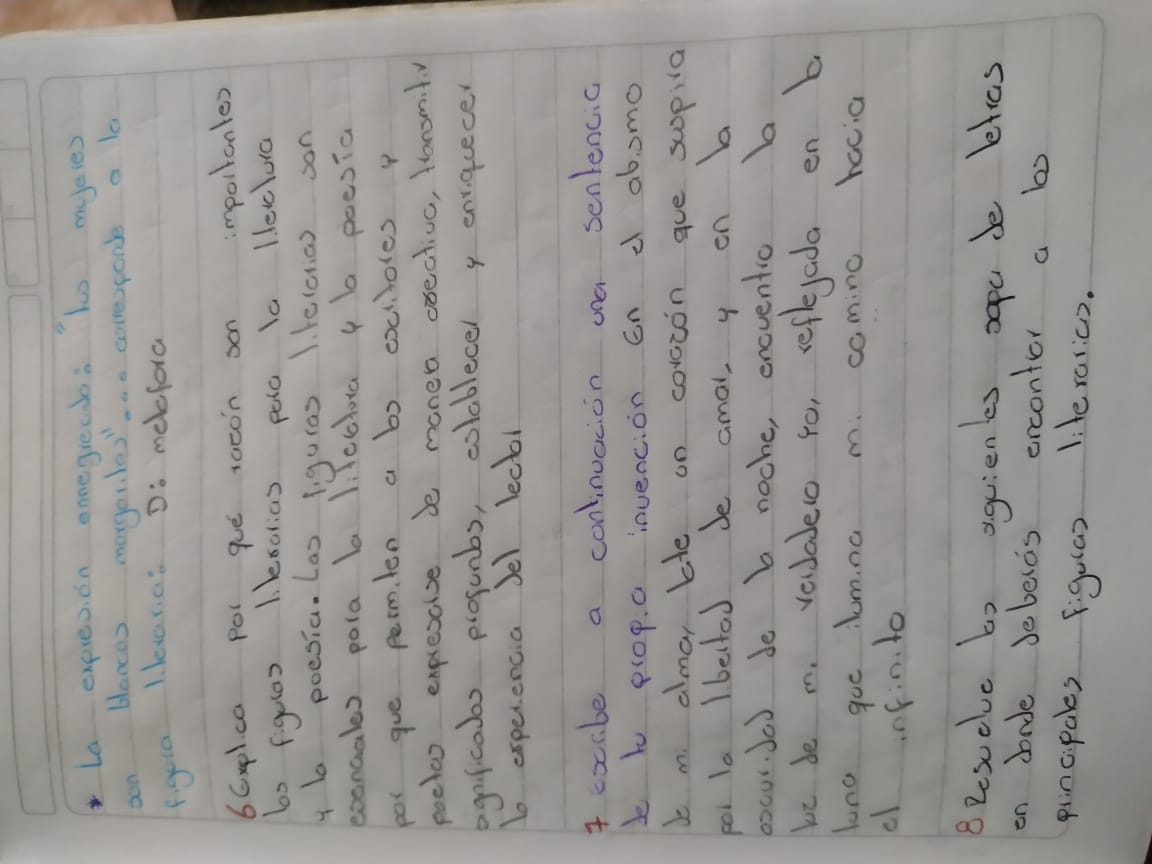 * La expresión ennegrecida: "las mujeres
son blancas margaritas"... corresponde a la
figura literaria: D: metafora
6 Explica por qué razón son importantes
las figuras literarias para la literatura
y la poesía. Las figuras literarias son
esenciales para la literatura y la poesía
por que permiten a los escritores y
poetas expresarse de manera creativa, transmitir
significados profundos, establecer y enriquecer
la experiencia del lector
7 escribe a continuación una sentencia
de tu propia invención En el abismo
de mi alma, late un corazón que suspira
por la libertad de amar, y en la
oscuridad de la noche, encuentro la
luz de mi verdadero yo, reflejada en la
luna que ilumina mi camino hacia
el infinito
8 Resuelve las siguientes sopa de letras
en donde deberás encontrar a las
principales figuras literarias.